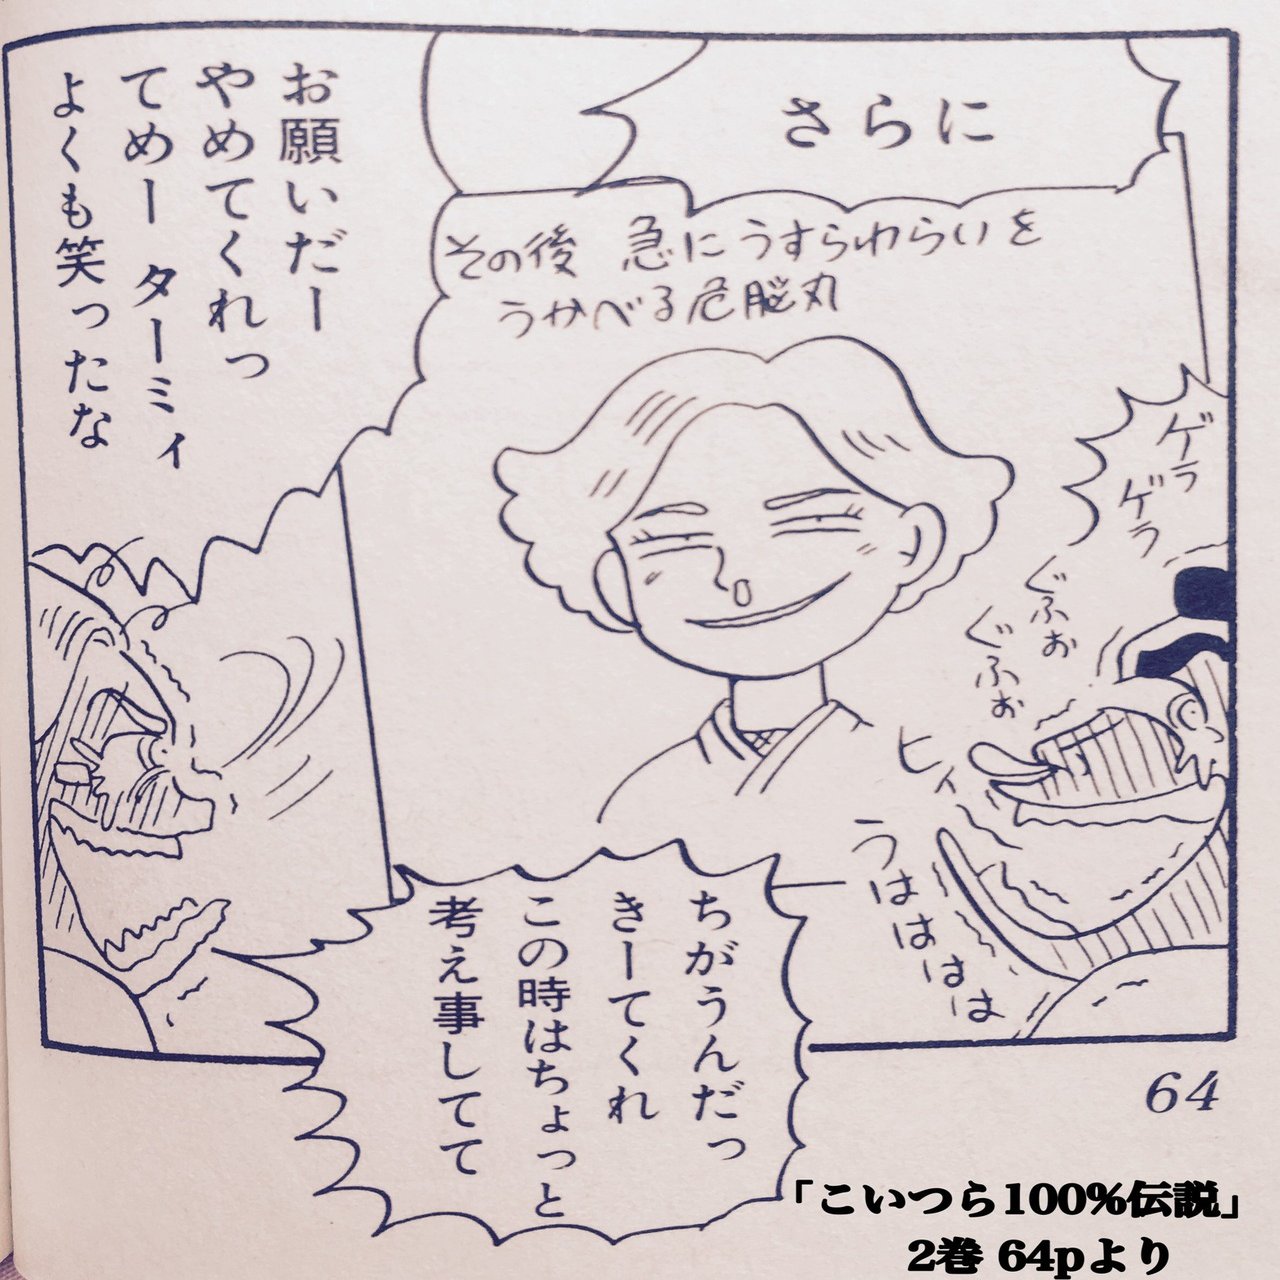 さらに
その後 急にうすらわらいを
うかべる危脳丸
ゲラ
ゲラ
ぐふぉ
ぐふぉ
ヒィ
うはははは
ちがうんだっ
きーてくれ
この時はちょっと
考え事してて
お願いだー
やめてくれっ
てめー ターミィ
よくも笑ったな
64
「こいつら100%伝説」
2巻 64pより